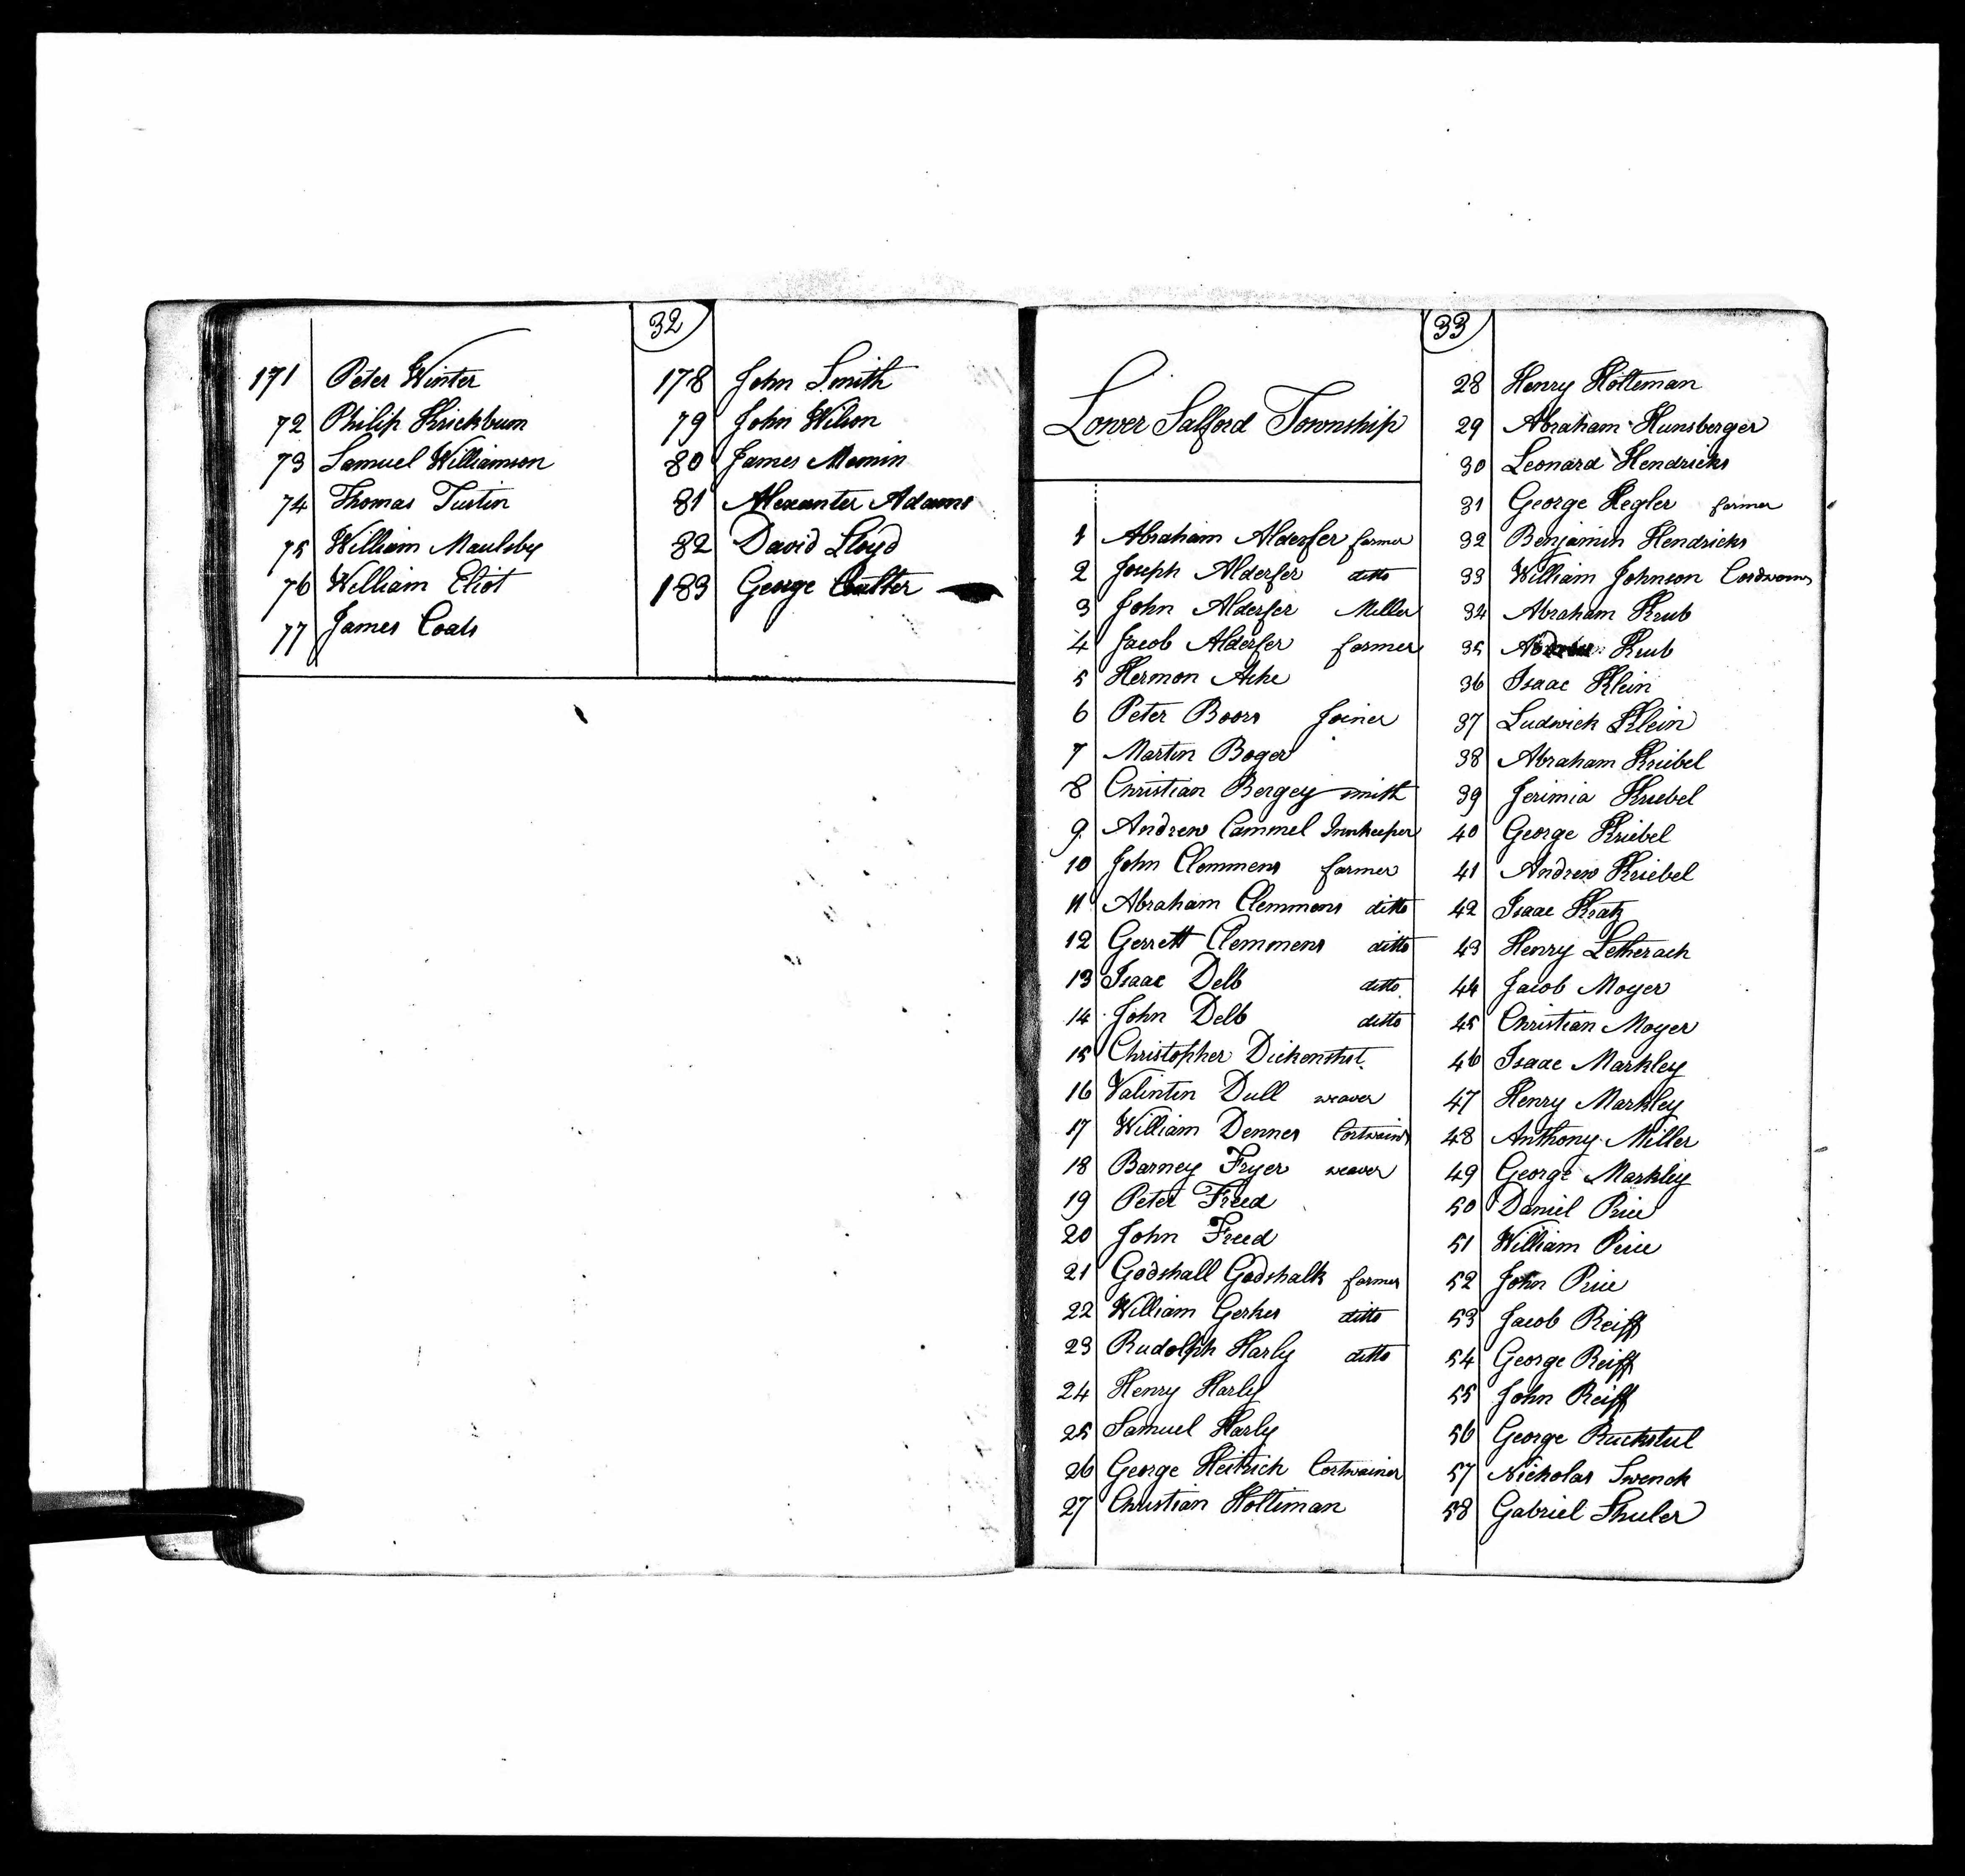 32
171 Peter Winter
72 Philip Krickbum
73 Samuel Williamson
74 Thomas Tustin
75 William Maulsby
76 William Eliot
77 James Coats
178 John Smith
79 John Wilson
80 James Memin
81 Alexanter Adams
82 David Lloyd
183 George Coulter
33
Lower Salford Township
1 Abraham Alderfer farmer
2 Joseph Alderfer ditto
3 John Alderfer Miller
4 Jacob Alderfer farmer
5 Hermon Ashe
6 Peter Boors Joiner
7 Martin Boger
8 Christian Bergey smith
9 Andrew Cammel Innkeeper
10 John Clemmens farmer
11 Abraham Clemmens ditto
12 Gerrett Clemmens ditto
13 Isaac Delb ditto
14 John Delb ditto
15 Christopher Dickenshet
16 Valintin Dull weaver
17 William Denner Cortwainer
18 Barney Fryer weaver
19 Peter Freed
20 John Freed
21 Godshall Godshalk farmer
22 William Gerhes ditto
23 Rudolph Harly ditto
24 Henry Harly
25 Samuel Harly
26 George Heitrich Cortwainer
27 Christian Holtiman
28 Henry Holteman
29 Abraham Hunsberger
30 Leonard Hendricks
31 George Hegler farmer
32 Benjamin Hendricks
33 William Johnson Cordwainer
34 Abraham Krub
35 Krub
36 Isaac Klein
37 Ludwick Klein
38 Abraham Kriebel
39 Jerimia Kriebel
40 George Kriebel
41 Andrew Kriebel
42 Isaac Kratz
43 Henry Letherach
44 Jacob Moyer
45 Christian Moyer
46 Isaac Markley
47 Henry Markley
48 Anthony Miller
49 George Markley
50 Daniel Price
51 William Price
52 John Price
53 Jacob Reiff
54 George Reiff
55 John Reiff
56 George Ruckstul
57 Nicholas Swenck
58 Gabriel Shuler